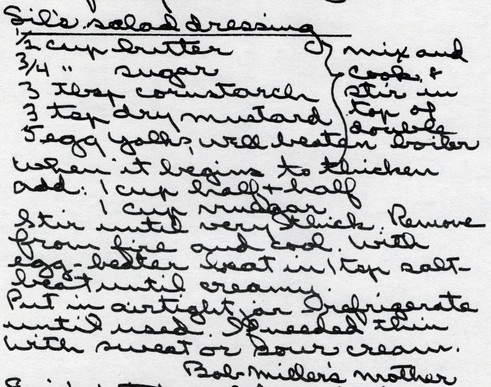 Sil's salad dressing
1/2 cup butter
3/4 " sugar
3 tbsp cornstarch
3 tsp dry mustard
5 egg yolks, well beaten
mix and
cook &
stir in
top of
double
boiler
When it begins to thicken
add: 1 cup half + half
1 cup vinegar
Stir until very thick. Remove
from fire and cool. With
egg-beater beat in 1 tsp salt-
beat until creamy.
Put in airtight jar & refrigerate
until used. If needed thin
with sweet or sour cream.
Bob Miller's mother